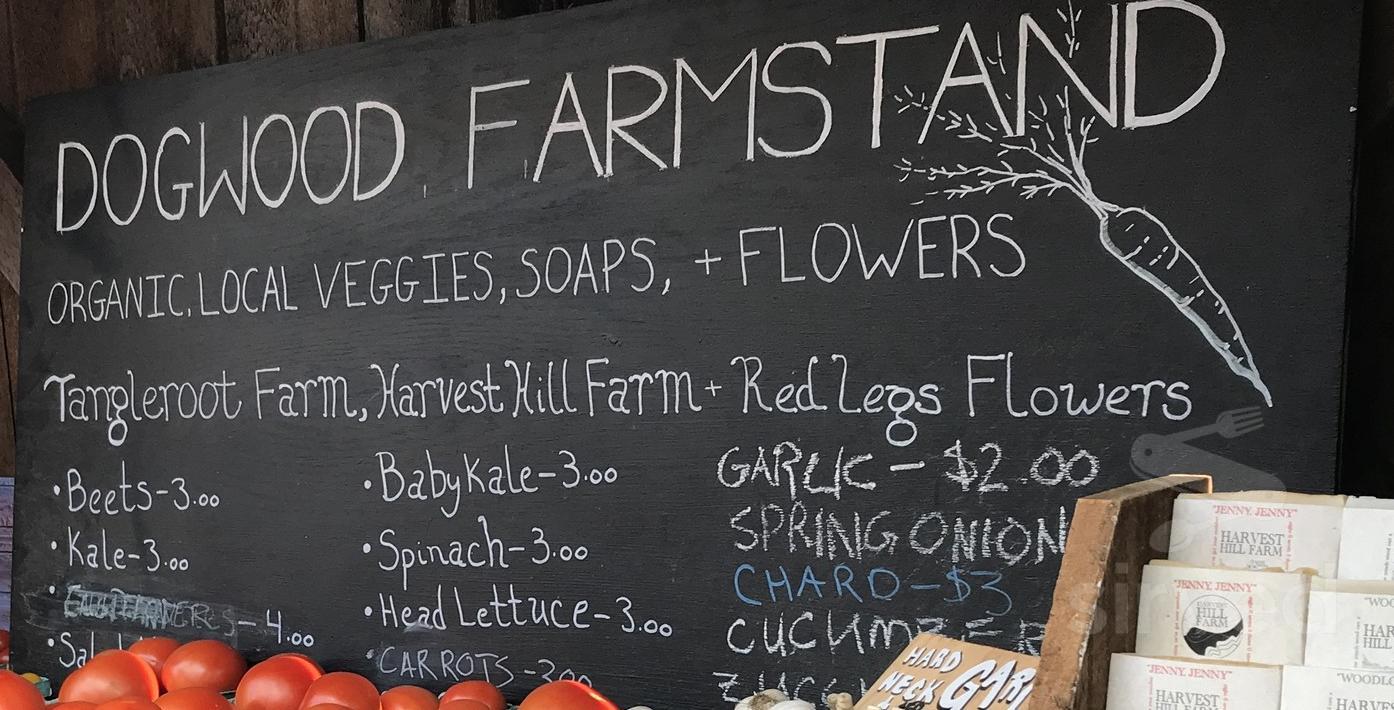 DOGWOOD FARMSTAND
ORGANIC, LOCAL VEGGIES, SOAPS, + FLOWERS
Tangleroot Farm, Harvest Hill Farm + Red Legs Flowers
• Beets - 3.00
• Kale - 3.00
• - 4.00
• Baby Kale - 3.00
• Spinach - 3.00
• Head Lettuce - 3.00
• CARROTS - 300
GARLIC - $2.00
SPRING ONION
CHARD - $3
HARD
NECK GAR
"JENNY, JENNY"
HARVEST
HILL FARM
"JENNY, JENNY"
HARVEST
HILL
FARM
"JENNY, JENNY"
HARVEST